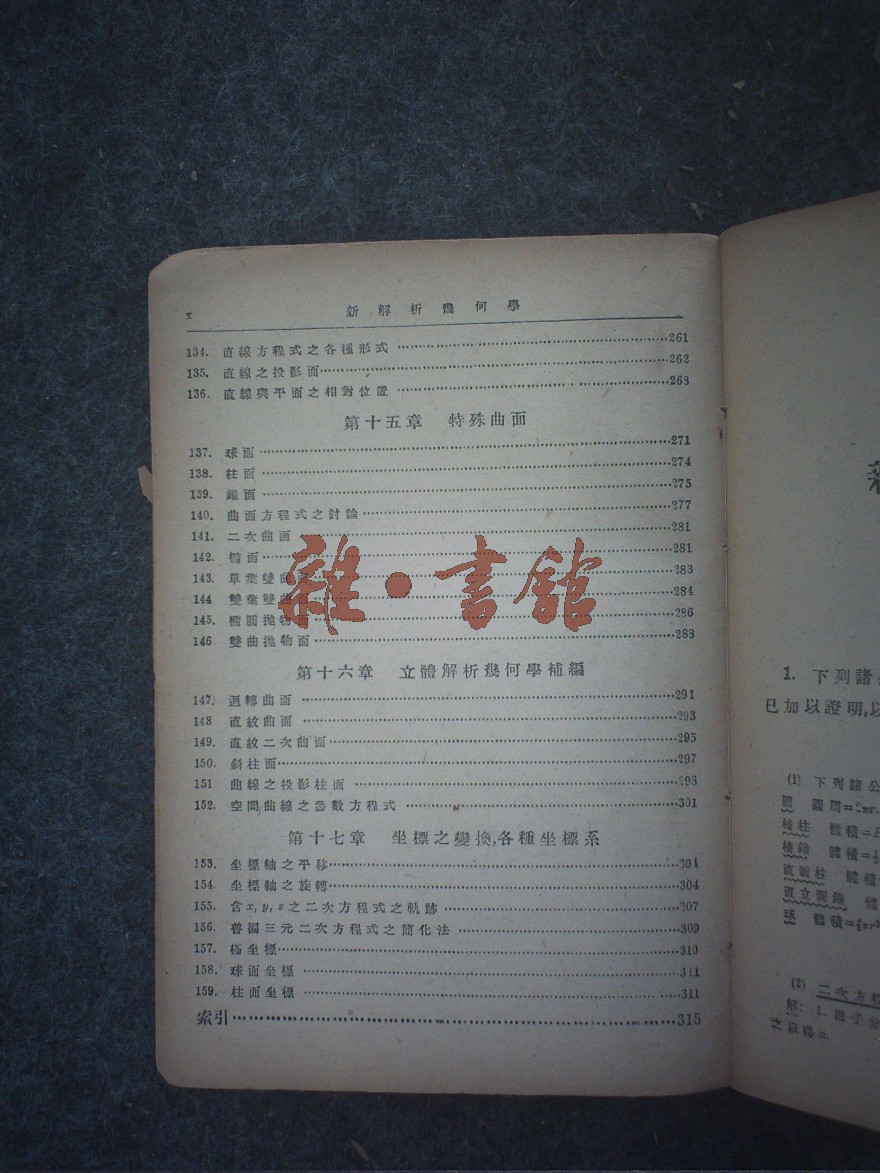 x 新解析幾何學
134. 直線方程式之各種形式 261
135. 直線之投影面 262
136. 直線與平面之相對位置 263
第十五章 特殊曲面
137. 球面 271
138. 柱面 274
139. 錐面 275
140. 曲面方程式之討論 277
141. 二次曲面 281
142. 橢面 281
143. 單葉雙曲面 283
144 雙葉雙曲面 284
145. 橢圓拋物面 286
146 雙曲拋物面 288
雜·書館
第十六章 立體解析幾何學補編
147. 迴轉曲面 291
148 直紋曲面 293
149. 直紋二次曲面 295
150. 斜柱面 297
151 曲線之投影柱面 298
152. 空間曲線之參數方程式 301
第十七章 坐標之變換,各種坐標系
153. 坐標軸之平移 304
154. 坐標軸之旋轉 304
155. 含 x, y, z 之二次方程式之軌跡 307
156. 普徧三元二次方程式之簡化法 309
157. 極坐標 310
158. 球面坐標 311
159. 柱面坐標 311
索引 315
1. 下列諸
已加以證明,以
(1) 下列諸公
圓 圓周=2πr.
棱柱 體積=
棱錐 體積=
直圓柱 體積
直立圓錐 體
球 體積=
(2) 二次方程
解: 1. 因子分
之以得 x.